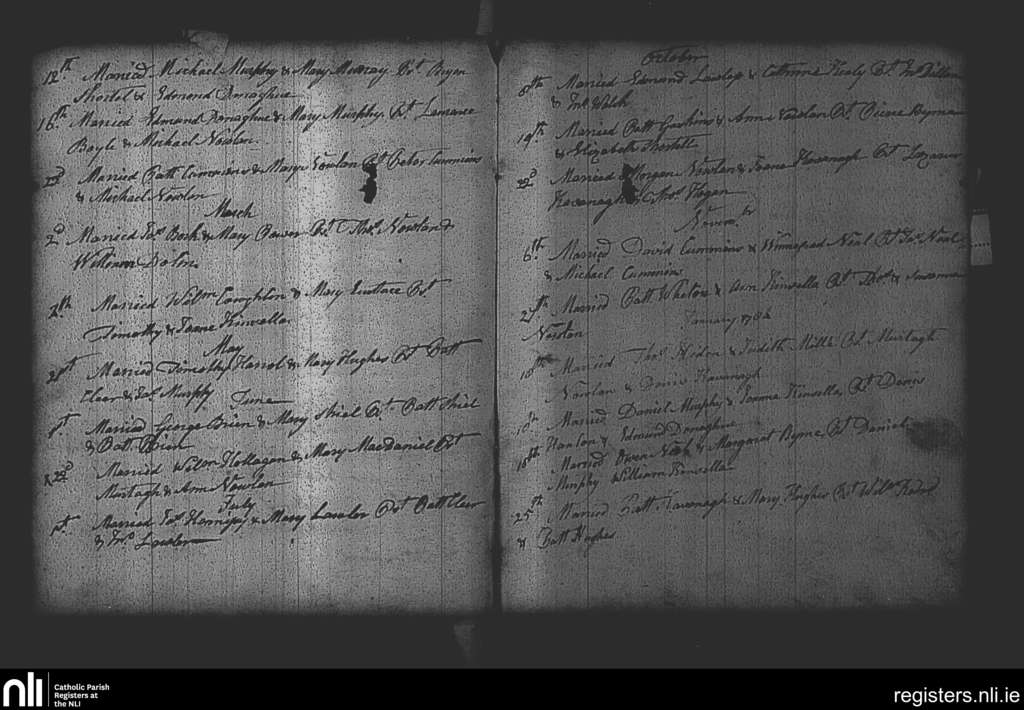 12th Married Michael Murphy & Mary Murray Pt. Bryan
Shortel & Edmond Donaghue
16th Married Edmund Donaghue & Mary Murphy Pt. Lawrance
Boyle & Michael Nowlan
23d Married Patt Cummins & Mary Nowlan Pt. Peter Cummins
& Michael Nowlan
March
2d Married Jas. & Mary Power Pt. Thos. Nowland
William Dolin
Married Willm & Mary Eustace Pt.
Timothy & Jaane Kinsella
May
Married Timothy & Mary Hughes Pt. Patt
Cleer & Jas. Murphy
June
1st Married George Brien & Mary Shiel Pt. Patt Shiel
& Patt Brien
22d Married Willm & Mary Macdaniel Pt.
Murtagh & Ann Nowlan
July
Married Jas. & Mary Lawler Pt. Patt Cleer
& Lawler
October
8th Married Edmond Lawler & Catherine Healy Pt.
& Walsh
19th Married Patt & Ann Nowlan Pt. Pierce Byrne
& Elizabeth
22d Married Morgan Nowlan & Jaane Kavanagh Pt. Lazarus
Kavanagh & Thos. Hogan
Novemr.
6th Married David Cummins & Winnefred Neal Pt. Jas. Neal
& Michael Cummins
27th Married Patt & Ann Kinsella Pt. & Susanna
Nowlan
January
10th Married Thos. & Judith Pt. Murtagh
Nowlan & Denis Kavanagh
Married Daniel Murphy & Kinsella Pt. Denis
Hanlon & Edmund Donaghue
18th Married Owen & Margaret Byrne Pt. Daniel
Murphy William Kinsella
25th Married Patt Kavanagh & Mary Hughes Pt. Willm
& Patt Hughes
nli
Catholic Parish
Registers at
the NLI
registers.nli.ie